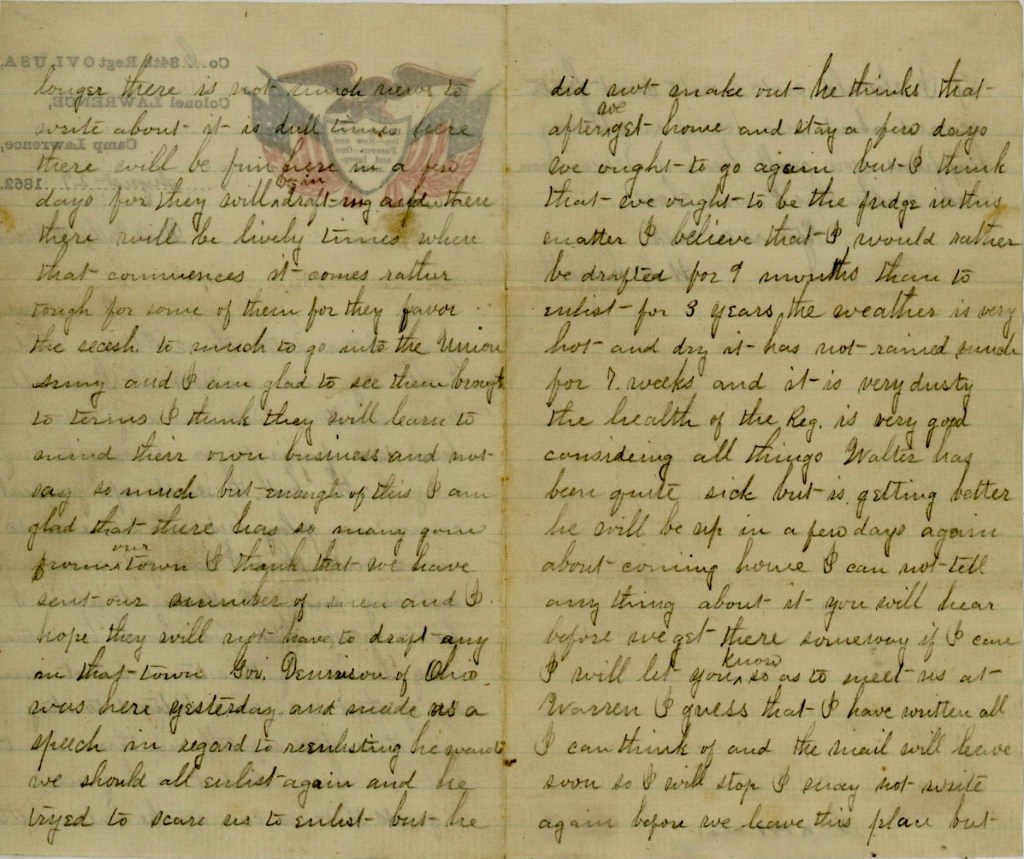 longer there is not much news to
write about it is dull times here
there will be fun here in a few
days for they will begin draft-ing and there
there will be lively times when
that commences it comes rather
tough for some of them for they favor
the secesh to much to go into the Union
army and I am glad to see them brought
to terms I think they will learn to
mind their own business and not
say so much but enough of this I am
glad that there has so many gone
from our town I think that we have
sent our number of men and I
hope they will not have to draft any
in that town Gov. Dennison of Ohio
was here yesterday and made us a
speech in regard to reenlisting he wants
we should all enlist again and he
tryed to scare us to enlist but he
did not make out he thinks that
after we get home and stay a few days
we ought to go again but I think
that we ought to be the judge in this
matter I believe that I would rather
be drafted for 9 months than to
enlist for 3 years, the weather is very
hot and dry it has not rained much
for 7 weeks and it is very dusty
the health of the Reg. is very good
considering all things Walter has
been quite sick but is getting better
he will be up in a few days again
about coming home I can not tell
any thing about it you will hear
before we get there someway if I can
I will let you know so as to meet us at
Warren I guess that I have written all
I can think of and the mail will leave
soon so I will stop I may not write
again before we leave this place but
Co. 84th Regt OVI, USA,
Colonel LAWRENCE,
Camp Lawrence,
1862.